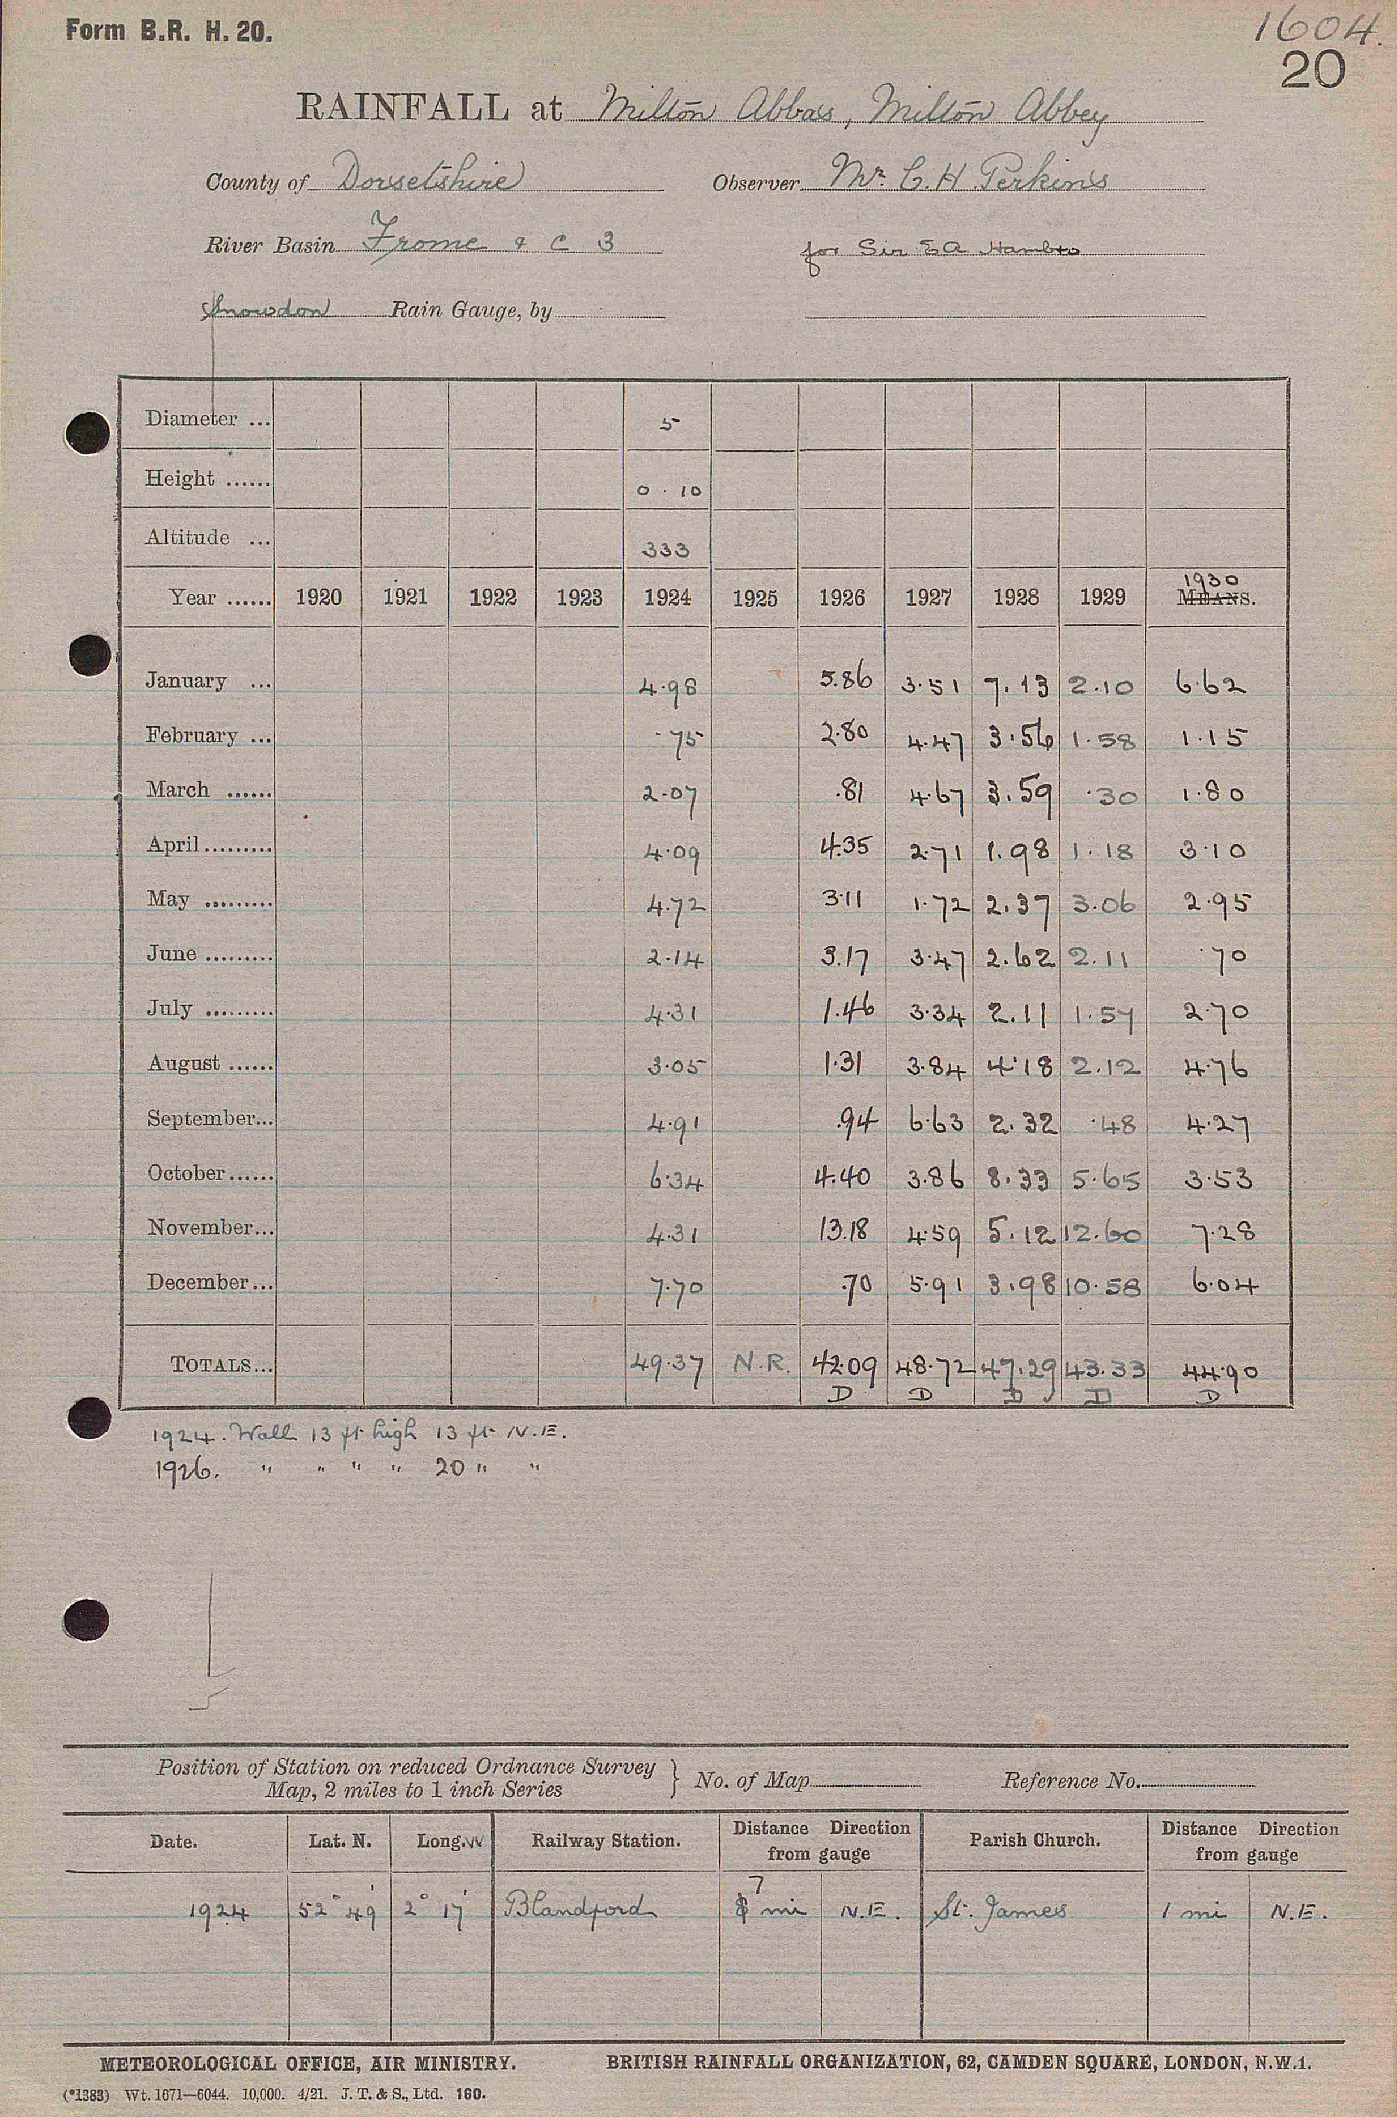 Form B.R. H. 20.
1604.
20
RAINFALL at Milton Abbas, Milton Abbey
County of Dorsetshire Observer Mr. C. H. Perkins
River Basin Frome & C 3 for Sir E A Hambro
Snowdon Rain Gauge, by
Diameter ... 5
Height ...... 0 . 10
Altitude ... 333
1930
Year ...... 1920 1921 1922 1923 1924 1925 1926 1927 1928 1929 MEANS.
January ... 4.98 5.86 3.51 7.13 2.10 6.62
February ... .75 2.80 4.47 3.56 1.58 1.15
March ...... 2.07 .81 4.67 3.59 .30 1.80
April ......... 4.09 4.35 2.71 1.98 1.18 3.10
May ......... 4.72 3.11 1.72 2.37 3.06 2.95
June ......... 2.14 3.17 3.47 2.62 2.11 .70
July ......... 4.31 1.46 3.34 2.11 1.57 2.70
August ...... 3.05 1.31 3.84 4.18 2.12 4.76
September... 4.91 .94 6.63 2.32 .48 4.27
October ...... 6.34 4.40 3.86 8.33 5.65 3.53
November... 4.31 13.18 4.59 5.12 12.60 7.28
December... 7.70 .70 5.91 3.98 10.58 6.04
TOTALS... 49.37 N.R. 42.09 48.72 47.29 43.33 44.90
D D D D D
1924. Wall 13 ft high 13 ft N.E.
1926. " " " " 20 " "
Position of Station on reduced Ordnance Survey
Map, 2 miles to 1 inch Series } No. of Map Reference No.
Date. Lat. N. Long. W Railway Station. Distance Direction from gauge Parish Church. Distance Direction from gauge
1924 52° 49' 2° 17' Blandford 7 mi N.E. St. James 1 mi N.E.
METEOROLOGICAL OFFICE, AIR MINISTRY. BRITISH RAINFALL ORGANIZATION, 62, CAMDEN SQUARE, LONDON, N.W.1.
(*1383) Wt. 1671—6044. 10,000. 4/21. J. T. & S., Ltd. 160.